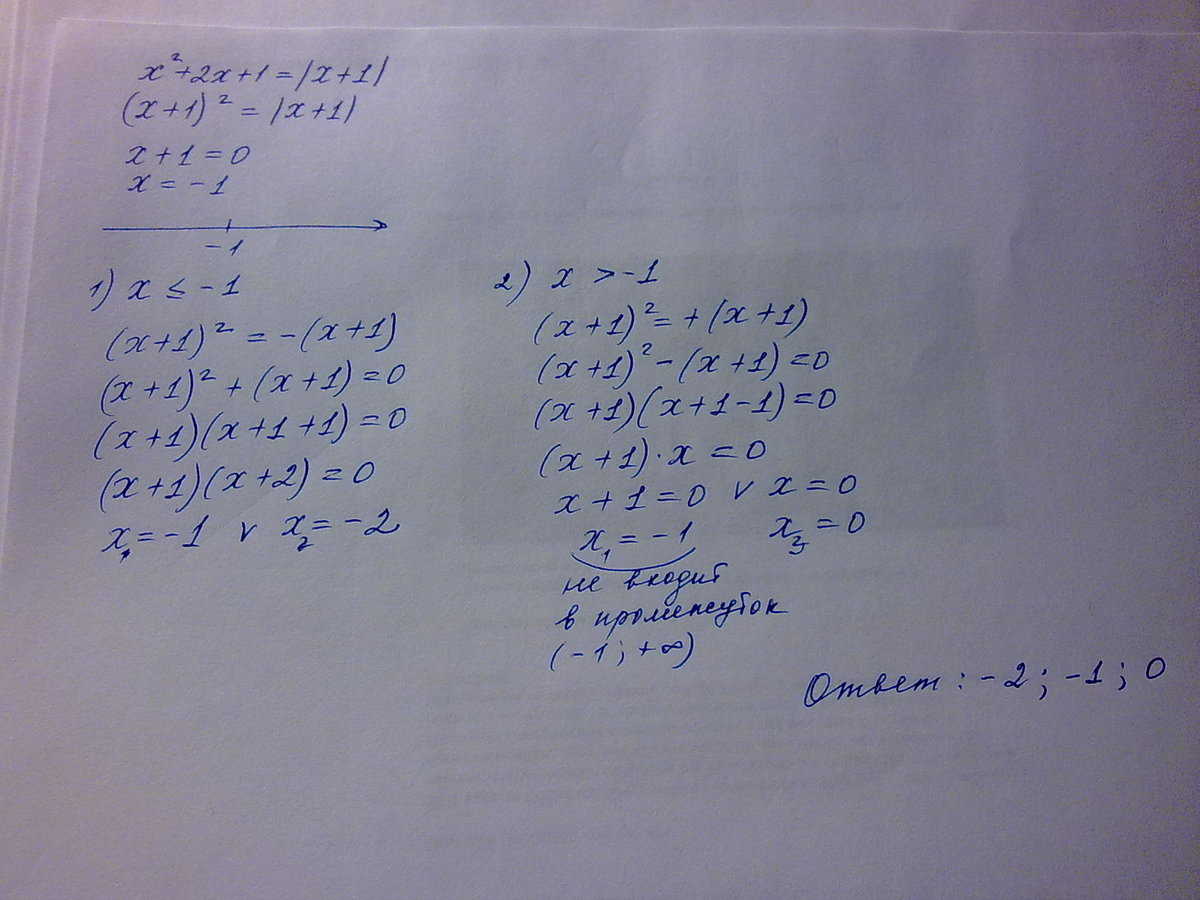 x²+2x+1=|x+1|
(x+1)²=|x+1|
x+1=0
x=-1
-1
1) x ≤ -1
(x+1)²=-(x+1)
(x+1)²+(x+1)=0
(x+1)(x+1+1)=0
(x+1)(x+2)=0
x₁=-1 v x₂=-2
2) x >-1
(x+1)²=+(x+1)
(x+1)²-(x+1)=0
(x+1)(x+1-1)=0
(x+1)·x=0
x+1=0 v x=0
x₁=-1 x₃=0
не входит
в промежуток
(-1; +∞)
Ответ: -2; -1; 0